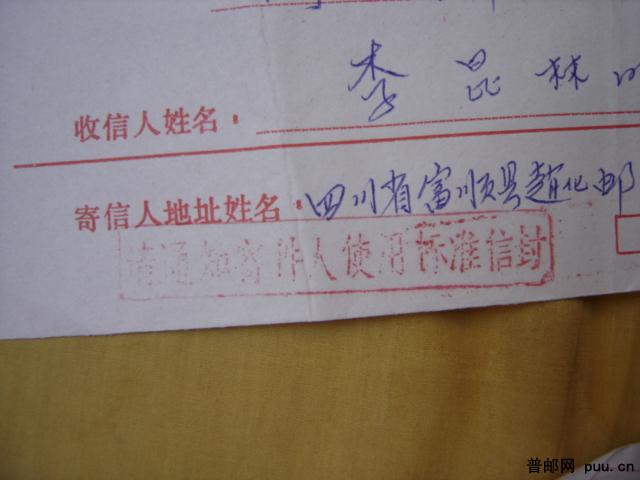 收信人姓名：李昆林
寄信人地址姓名：四川省富顺县赵化邮
请通知寄件人使用标准信封
普邮网 puu.cn